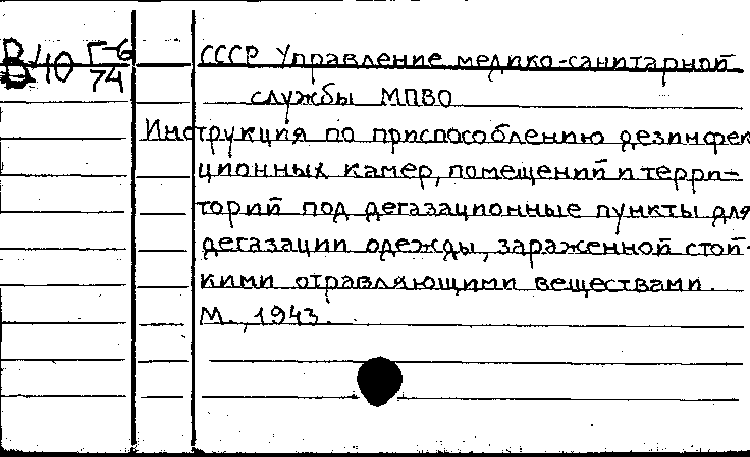 В40 Г-6/74
СССР Управление медико-санитарной
службы МПВО
Инструкция по приспособлению дезинфек
ционных камер, помещений и терри-
торий под дегазационные пункты для
дегазации одежды, зараженной стой-
кими отравляющими веществами.
М., 1943.